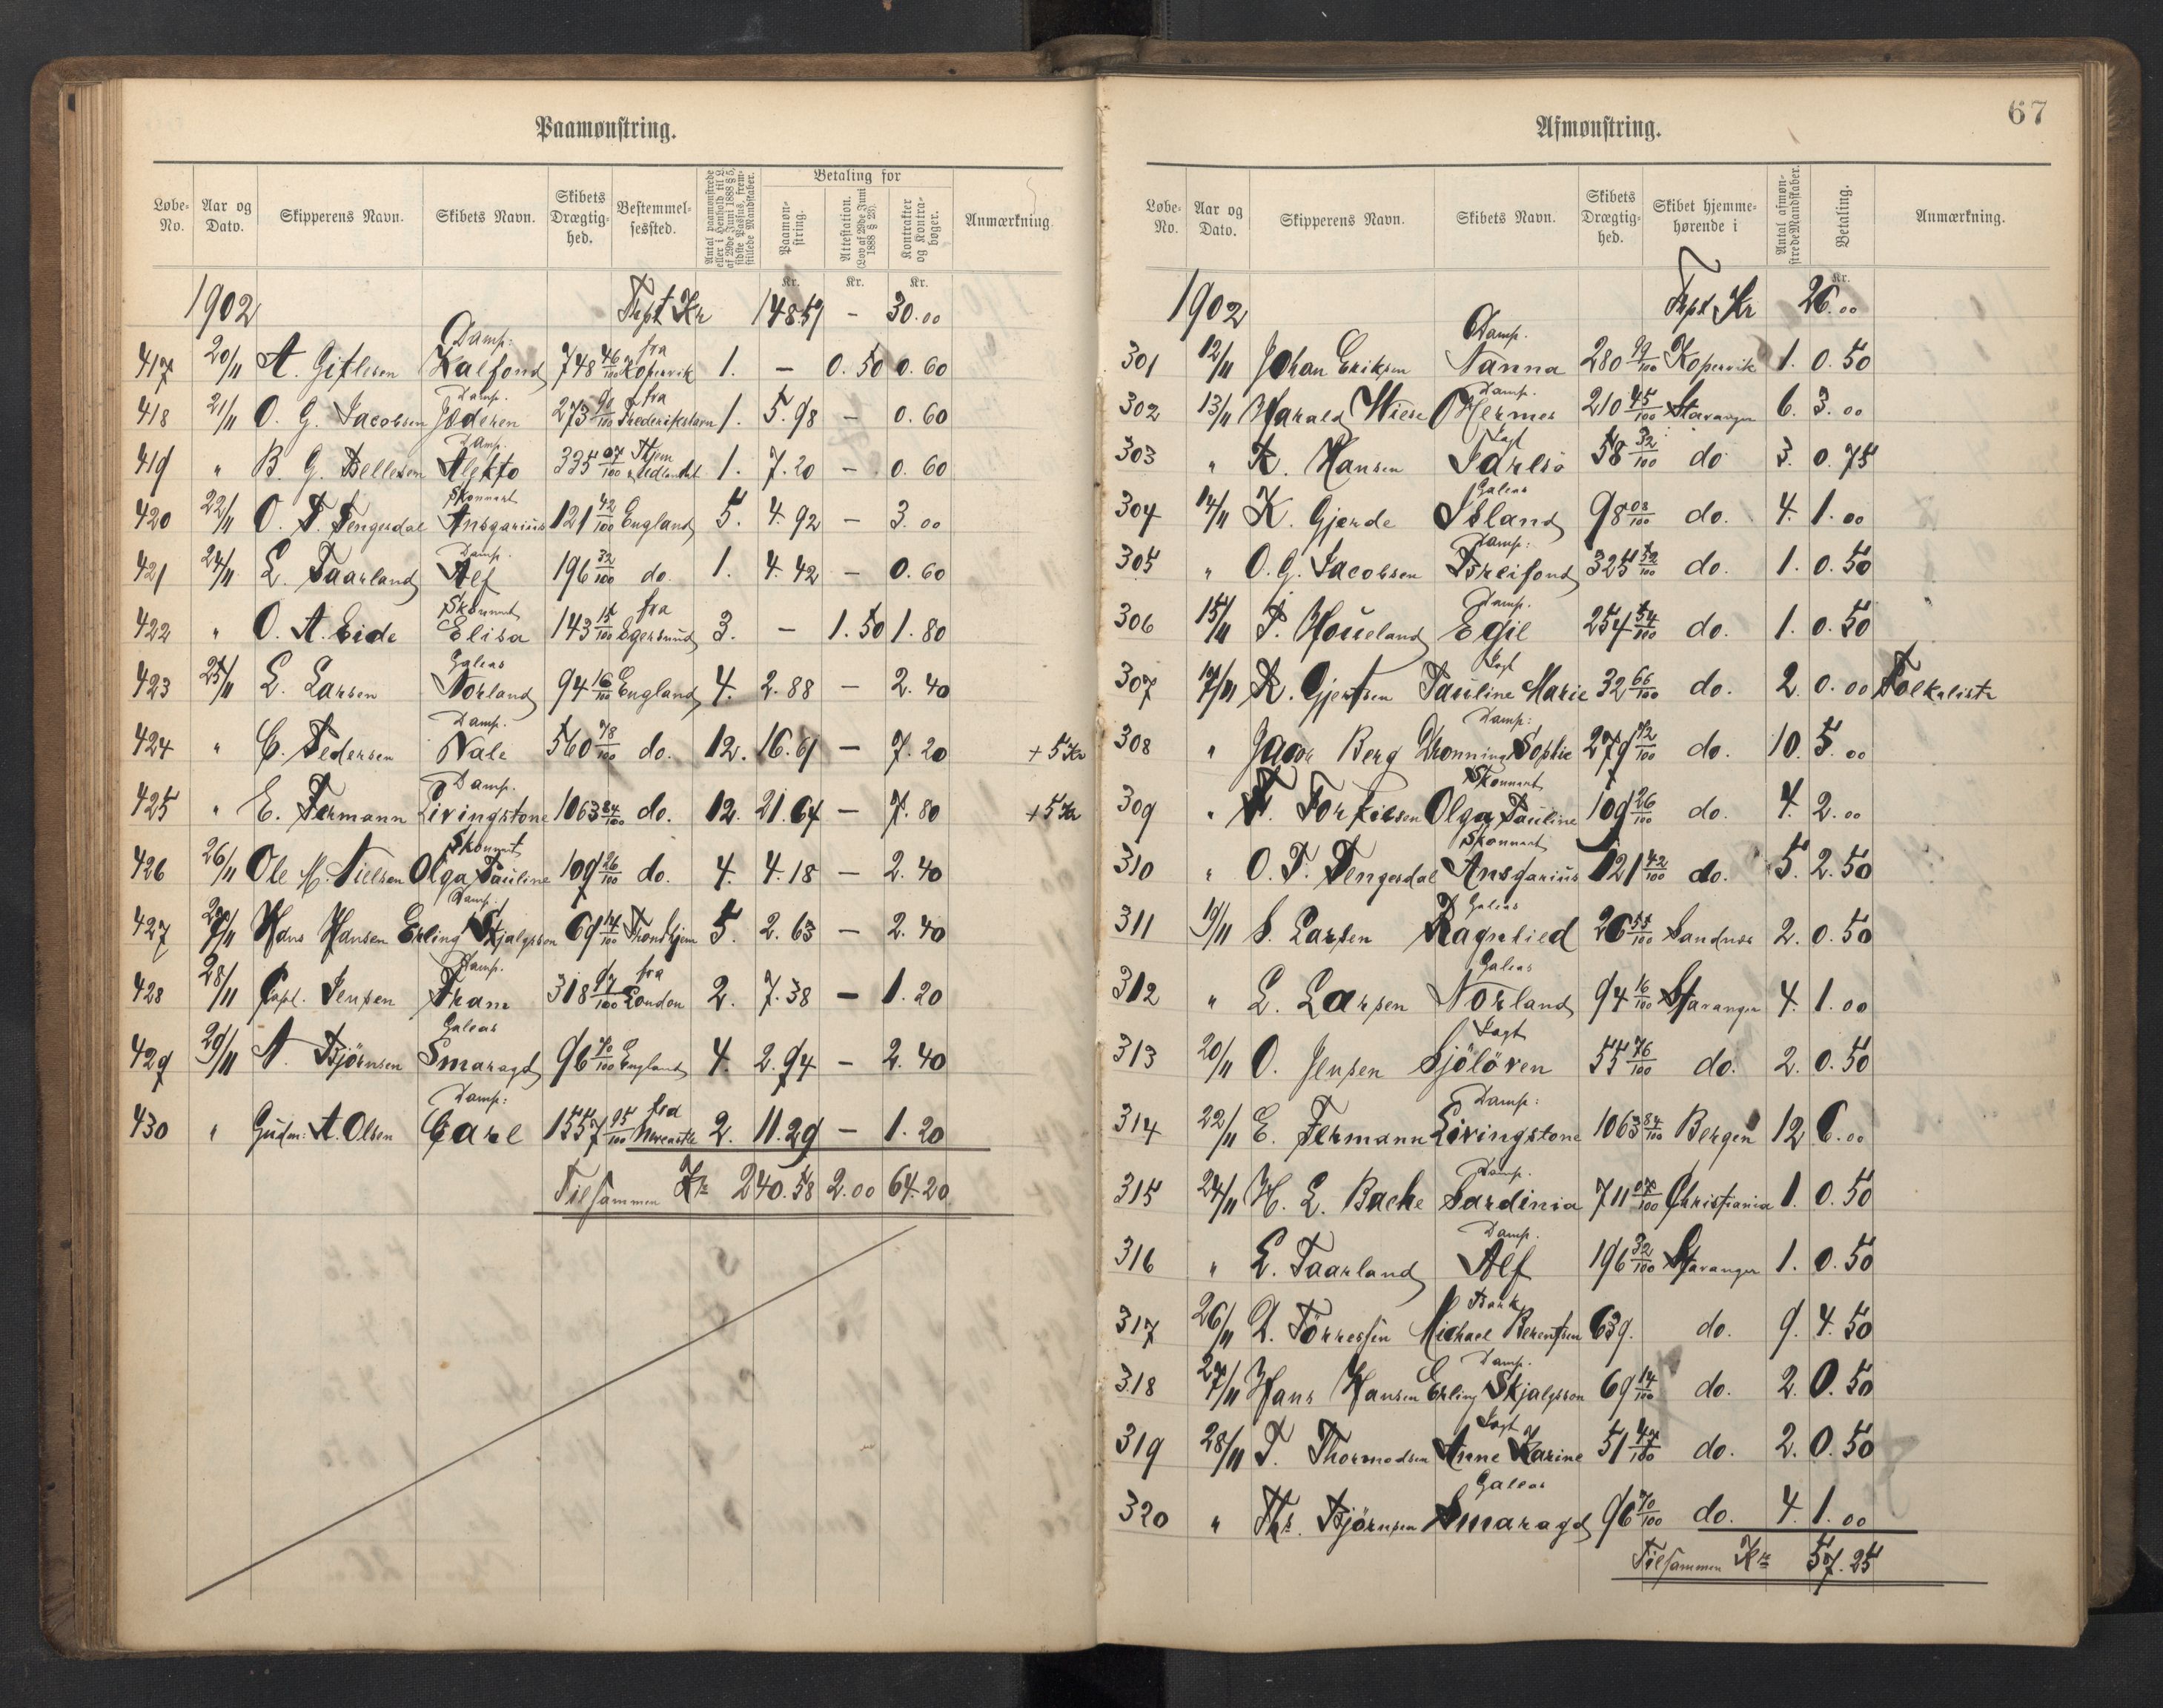 Paamønstring.
Løbe-No. Aar og Dato. Skipperens Navn. Skibets Navn. Skibets Drægtighed. Bestemmelsessted. Antal paamønstrede eller i Henhold til L. af 29de Juni 1888 § 5, sidste Passus, fremstillede Mandskaber. Betaling for Paamønstring. Attestation. (Lov af 29de Juni 1888 § 23). Kontrakter og Kontrabøger. Anmærkning.
Kr. Kr. Kr.
1902 Trpt Kr 148.51 – 30.00
417 20/11 A. Gitlesen Damp: Kalfond 748 46/100 fra Kopervik 1. – 0.50 0.60
418 21/11 O. G. Jacobsen Damp. Jæderen 273 90/100 fra Frederikstavn 1. 5.98 – 0.60
419 " B. G. Bellesen Damp. Alekto 335 07/100 Hjem & Udlandet 1. 7.20 – 0.60
420 22/11 O. T. Tengesdal Skonnert Ansgarius 121 42/100 England 5. 4.92 – 3.00
421 24/11 L. Taarland Damp. Alf 196 32/100 do. 1. 4.42 – 0.60
422 " O. A. Eide Skonnert Elisa 143 15/100 fra Egersund 3. – 1.50 1.80
423 25/11 L. Larsen Galeas Norland 94 16/100 England 4. 2.88 – 2.40
424 " C. Pedersen Damp. Vale 560 78/100 do. 12. 16.61 – 7.20 + 5 Kr
425 " E. Fermann Damp. Livingstone 1063 84/100 do. 12. 21.64 – 7.80 + 5 Kr
426 26/11 Ole M. Nielsen Skonnert Olga Pauline 109 26/100 do. 4. 4.18 – 2.40
427 27/11 Hans Hansen Damp. Erling Skjalgsson 69 14/100 Trondhjem 5. 2.63 – 2.40
428 28/11 Capt. Jensen Damp. Fram 318 97/100 fra London 2. 7.38 – 1.20
429 29/11 N. Bjørnsen Galeas Smaragd 96 70/100 England 4. 2.94 – 2.40
430 " Gudm: A. Olsen Damp: Carl 1557 95/100 fra Newcastle 2. 11.29 – 1.20
Tilsammen Kr 240.58 2.00 64.20
67
Afmønstring.
Løbe-No. Aar og Dato. Skipperens Navn. Skibets Navn. Skibets Drægtighed. Skibet hjemmehørende i Antal afmønstrede Mandskaber. Betaling. Anmærkning.
Kr.
1902 Trpt Kr 26.00
301 12/11 Johan Eriksen Damp. Nanna 280 99/100 Kopervik 1. 0.50
302 13/11 Harald Wiese Damp. Hermes 210 45/100 Stavanger 6. 3.00
303 " K. Hansen Jagt Jarlsö 58 32/100 do 3. 0.75
304 14/11 K. Gjerde Galeas Island 98 08/100 do. 4. 1.00
305 " O. G. Jacobsen Damp: Breifond 325 52/100 do. 1. 0.50
306 15/11 T. Houeland Damp. Egil 254 54/100 do. 1. 0.50
307 17/11 K. Gjertsen Jagt Pauline Marie 32 66/100 do. 2. 0.00 Folkeliste
308 " Jacob Berg Damp: Dronning Sophie 279 72/100 do. 10. 5.00
309 " T. Torkilsen Skonnert Olga Pauline 109 26/100 do. 4. 2.00
310 " O. T. Tengesdal Skonnert Ansgarius 121 42/100 do. 5. 2.50
311 19/11 S. Larsen Galeas Ragnhild 26 55/100 Sandnes 2. 0.50
312 " L. Larsen Galeas Norland 94 16/100 Stavanger 4. 1.00
313 20/11 O. Jensen Jagt Sjöloven 55 76/100 do. 2. 0.50
314 22/11 E. Fermann Damp: Livingstone 1063 84/100 Bergen 12 6.00
315 24/11 H. L. Bache Damp. Sardinia 711 07/100 Christiania 1. 0.50
316 " L. Taarland Damp. Alf 196 32/100 Stavanger 1. 0.50
317 26/11 D. Törressen Bark Michael Berentsen 639. do. 9. 4.50
318 27/11 Hans Hansen Damp. Erling Skjalgsson 69 14/100 do. 2. 0.50
319 28/11 T. Thormodsen Jagt Anne Karine 51 47/100 do. 2. 0.50
320 " Ths. Björnsen Galeas Smaragd 96 70/100 do. 4. 1.00
Tilsammen Kr 57.25